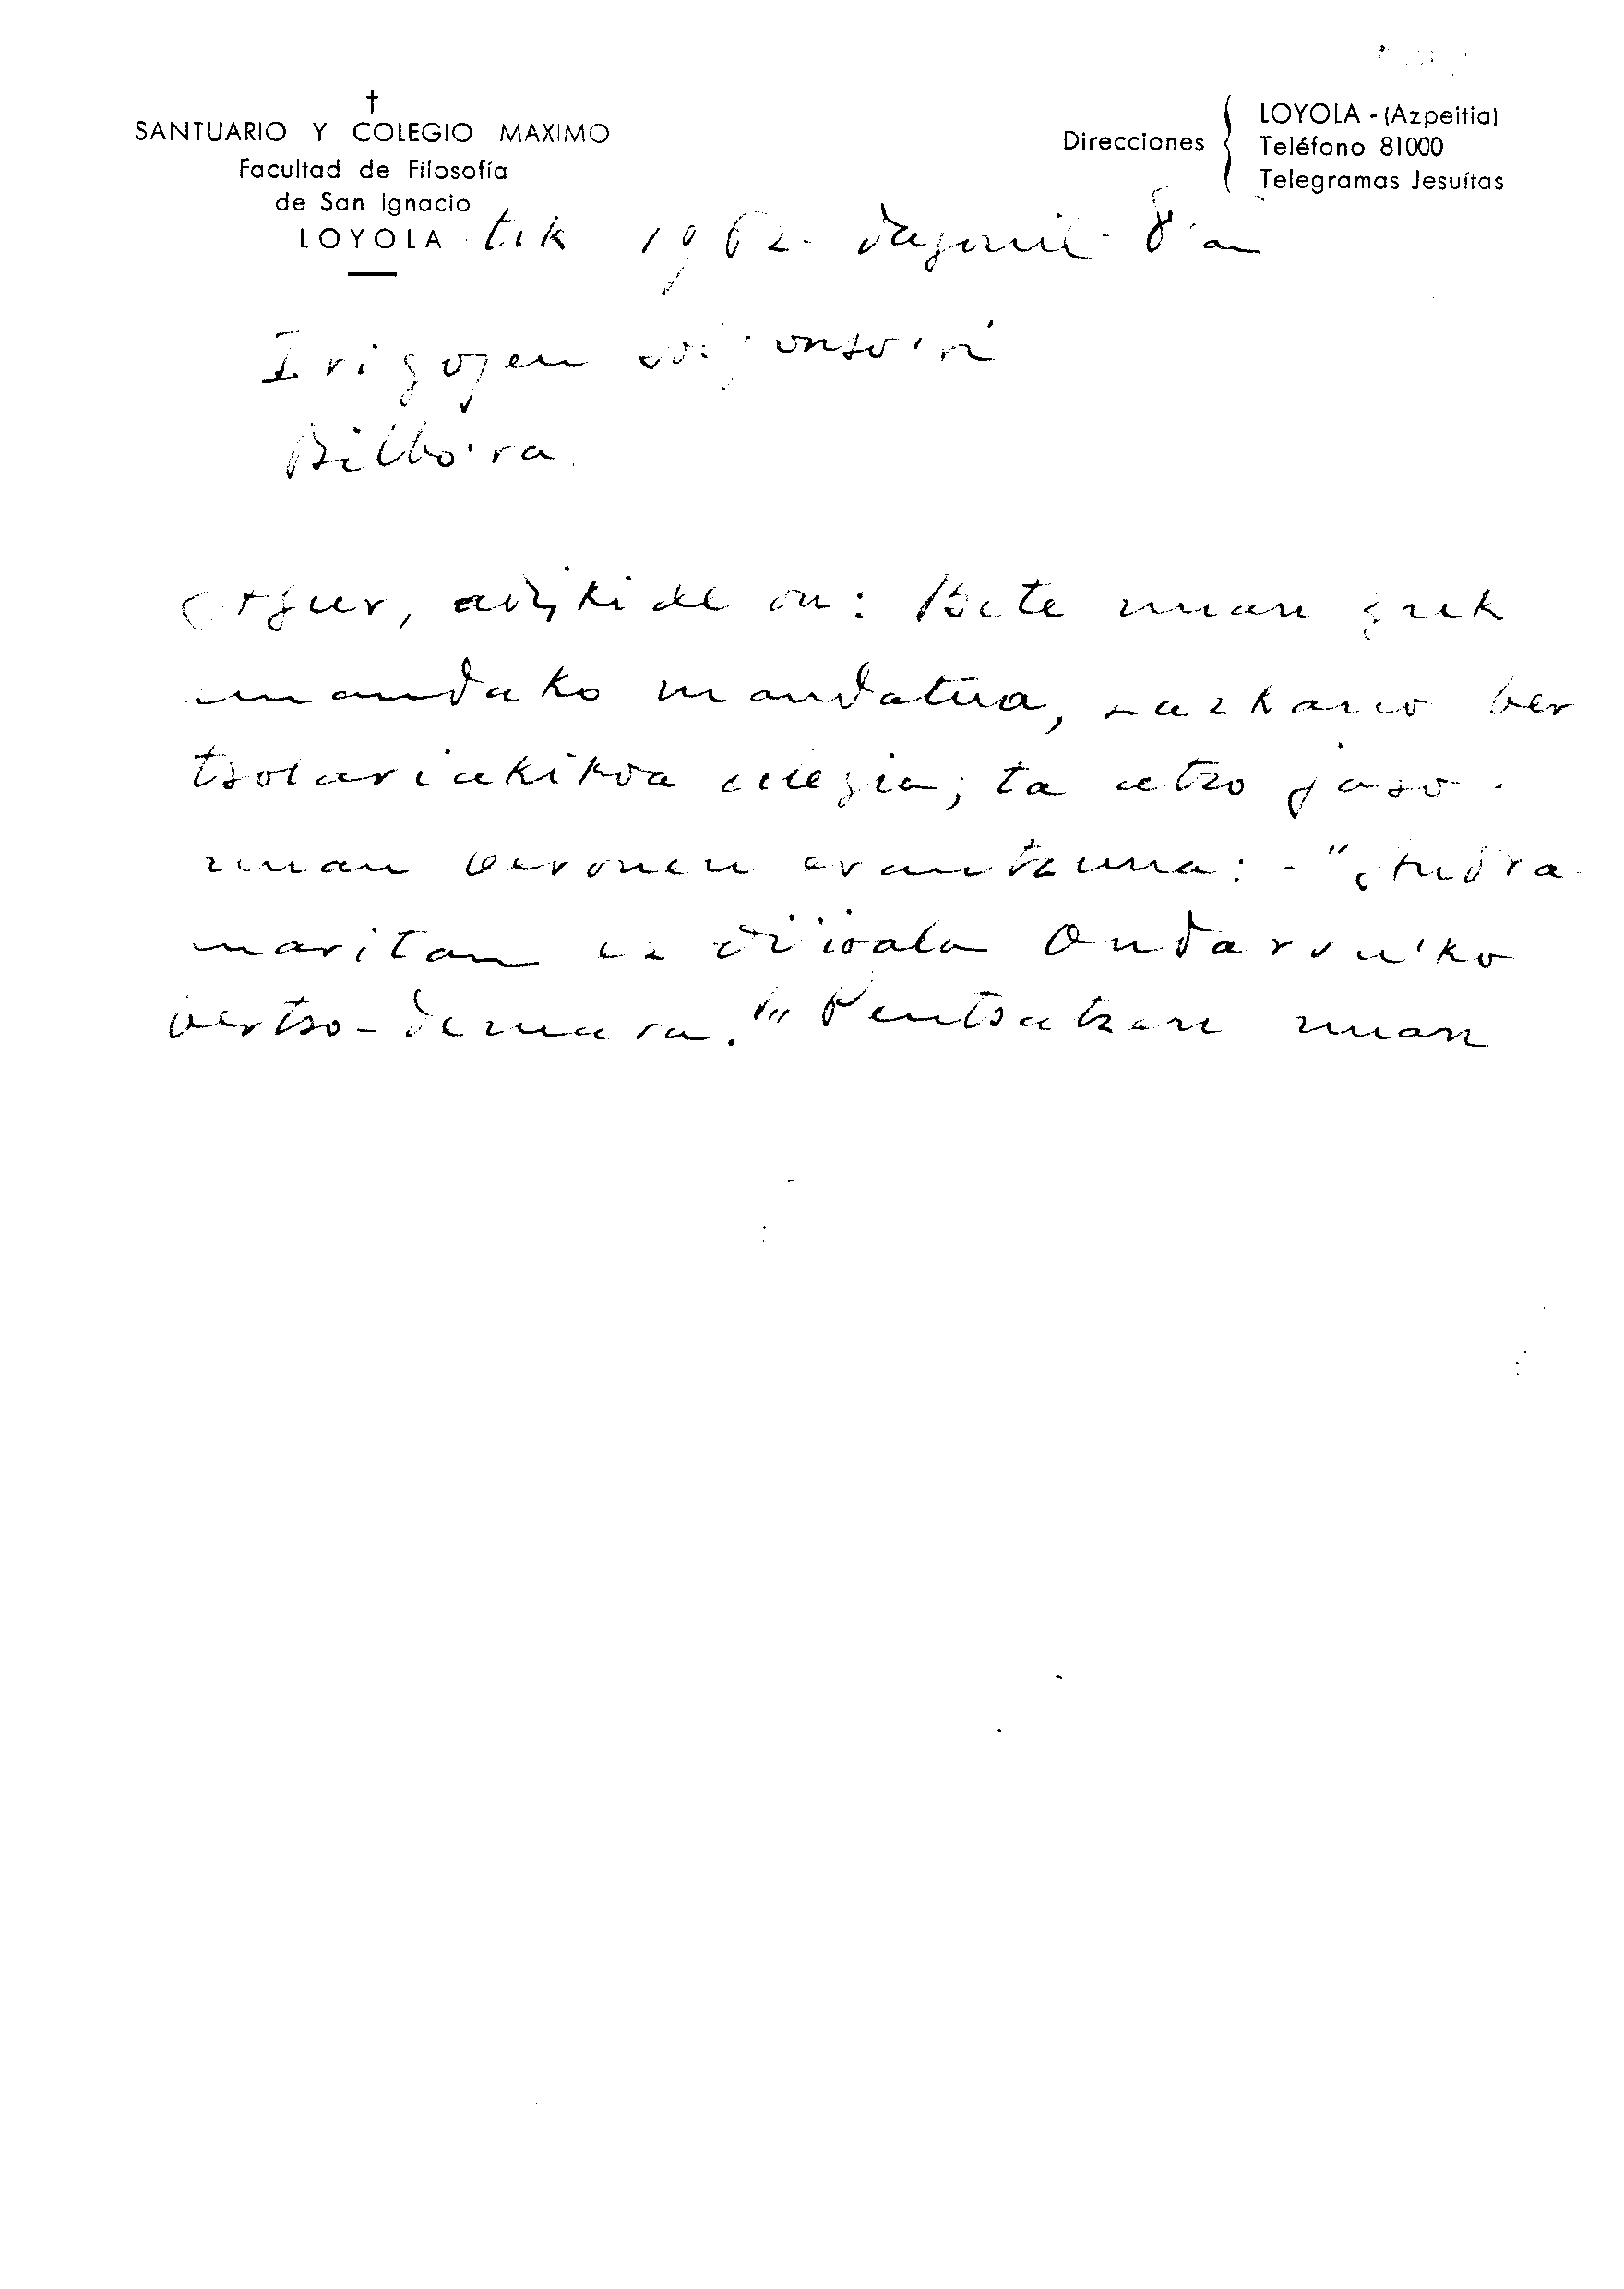 †
SANTUARIO Y COLEGIO MAXIMO
Facultad de Filosofía
de San Ignacio
LOYOLA tik 1962- dagonil- 8'an
Direcciones
LOYOLA - (Azpeitia)
Teléfono 81000
Telegramas Jesuítas
Irigoyen 'ri
Bilbo'ra
Agur, adizkide on: Bete nuan zuk
emandako mandatua, Lazkano ber
tsolariakikoa alegia; ta atzo jaso
nuan beronen erantzuna: - "Andra
maritan ez dijoala Ondarru'ko
bertso-demara." Pentsatzen nuan